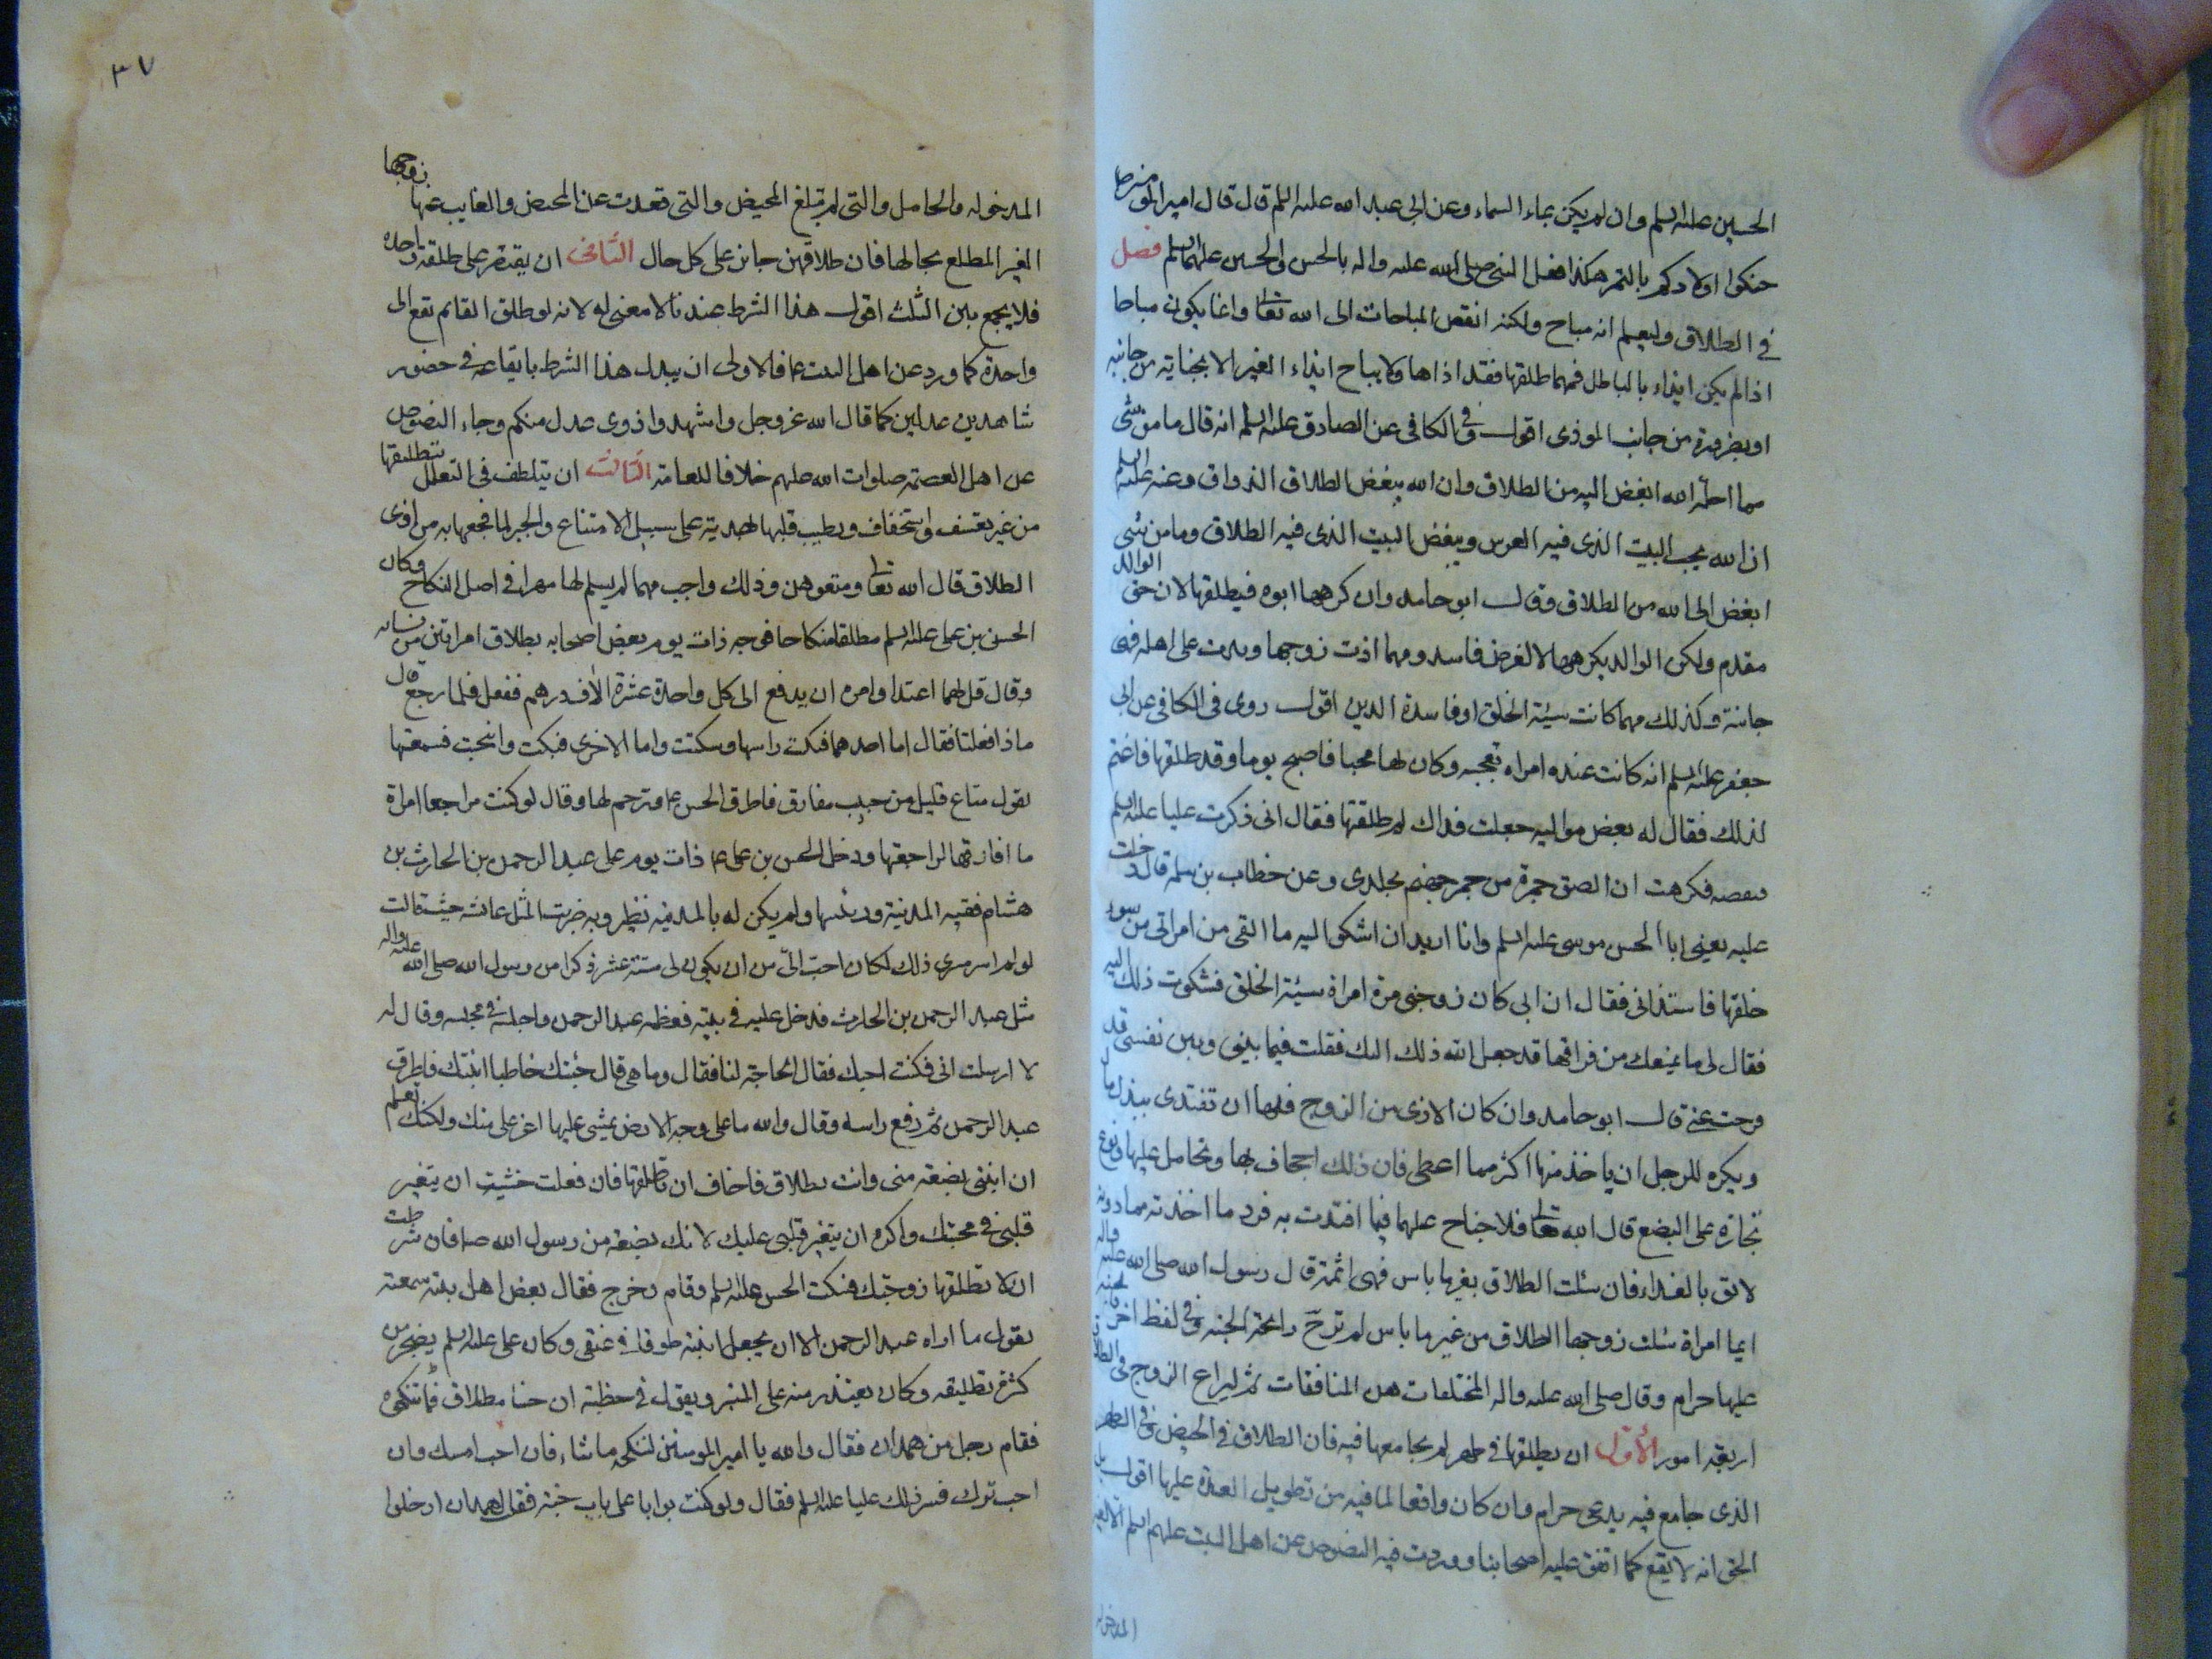 الحسين عليه السلم وان لم يكن بماء السماء وعن ابى عبد الله عليه السلم قال قال امير المؤمنين
حنكوا اولادكم بالتمر هكذا فعل النبى صلى الله عليه واله بالحسن والحسين عليهما السلم فصل
فى الطلاق وليعلم انه مباح ولكنه ابغض المباحات الى الله تعا وانما يكون مباحا
اذا لم يكن ايذاء بالباطل فمهما طلقها فقد اذاها ولا يباح ايذاء الغير الا بجناية من جانبه
او بضرورة من جانب الموذى اقول وفى الكافى عن الصادق عليه السلم انه قال ما من شى
مما احله الله ابغض اليه من الطلاق وان الله يبغض المطلاق الذواق وعنه عليه السلم
ان الله يحب البيت الذى فيه العرس ويبغض البيت الذى فيه الطلاق وما من شى
ابغض الى الله من الطلاق وقال ابو حامد وان كرهها ابوه فيطلقها لان حق الوالد
مقدم ولكن الوالد يكرهها لا لغرض فاسد ومهما اذت زوجها وبذت على اهله فهى
جانية وكذلك مهما كانت سيئة الخلق او فاسدة الدين اقول روى فى الكافى عن ابى
جعفر عليه السلم انه كانت عنده امراه تعجبه وكان لها محبا فاصبح يوما وقد طلقها فاغتم
لذلك فقال له بعض مواليه جعلت فداك لم طلقتها فقال انى ذكرت عليا عليه السلم
فتنقصته فكرهت ان الصق جمرة من جمر جهنم بجلدى وعن خطاب بن سلمه قال دخلت
عليه يعنى ابا الحسن موسى عليه السلم وانا اريد ان اشكو اليه ما القى من امراتى من سوء
خلقها فابتدانى فقال ان ابى كان زوجنى مرة امراة سيئة الخلق فشكوت ذلك اليه
فقال لى ما يمنعك من فراقها قد جعل الله ذلك اليك فقلت فيما بينى وبين نفسى قد
فرجت عنى قال ابو حامد وان كان الاذى من الزوج فلها ان تفتدى ببذل مال
ويكره للرجل ان ياخذ منها اكثر مما اعطى فان ذلك اجحاف بها وتحامل عليها ونوع
تجارة على البضع قال الله تعا فلا جناح عليهما فيما افتدت به فرد ما اخذته مما دونه
لائق بالفداء فان سئلت الطلاق بغير ما باس فهى اثمة قال رسول الله صلى الله عليه واله
ايما امراة سئلت زوجها الطلاق من غير ما باس لم ترح رائحة الجنة وفى لفظ اخر فالجنه
عليها حرام وقال صلى الله عليه واله المختلعات هن المنافقات ثم ليراع الزوج فى الطلاق
اربعة امور الأول ان يطلقها فى طهر لم يجامعها فيه فان الطلاق فى الحيض وفى الطهر
الذى جامع فيه بدعى حرام وان كان واقعا لما فيه من تطويل العدة عليها اقول بل
الحق انه لا يقع كما اتفق عليه اصحابنا ووردت فيه النصوص عن اهل البيت عليهم السلم الا لغير
المدخوله
٣٧
المدخوله والحامل والتى لم تبلغ المحيض والتى قعدت عن المحيض والغايب عنها زوجها
الغير المطلع بحالها فان طلاقهن جايز على كل حال الثانى ان يقتصر على طلقة واحدة
فلا يجمع بين الثلث اقول هذا الشرط عندنا لا معنى له لانه لو طلق القايم تقع الى
واحدة كما ورد عن اهل البيت ع فالاولى ان يبدل هذا الشرط بايقاعه فى حضور
شاهدين عدلين كما قال الله عز وجل واشهدوا ذوى عدل منكم وجاء النصوص
عن اهل العصمة صلوات الله عليهم خلافا للعامة الثالث ان يتلطف فى التعلل بتطليقها
من غير تعنف واستخفاف وتطيب قلبها بهدية على سبيل الامتناع والجبر لما فجعها به من اذى
الطلاق قال الله تعا ومتعوهن وذلك واجب مهما لم يسم لها مهر فى اصل النكاح وكان
الحسن بن على عليه السلم مطلاقا منكاحا فوجه ذات يوم بعض اصحابه بطلاق امراتين من نسائه
وقال قل لهما اعتدا وامره ان يدفع الى كل واحدة عشرة الاف درهم ففعل فلما رجع قال
ما ذا فعلتا فقال اما احدهما فنكست راسها وسكتت واما الاخرى فبكت وانتحبت فسمعتها
تقول متاع قليل من حبيب مفارق فاطرق الحسن ع وترحم لها وقال لو كنت مراجعا امراة
ما افارقها لراجعتها ودخل الحسن بن على ع ذات يوم على عبد الرحمن بن الحارث بن
هشام فقيه المدينة ورئيسها ولم يكن له بالمدينة نظير وبه ضربت المثل عائشه حيث قالت
لو لم اسر مسيرى ذلك لكان احب الىّ من ان يكون لى ستة عشر ذكرا من رسول الله صلى الله عليه واله
مثل عبد الرحمن بن الحارث فدخل عليه فى بيته فعظمه عبد الرحمن واجلسه فى مجلسه وقال له
لا ارسلت الى فكنت اجيك فقال الحاجة لنا فقال وما هى قال جئتك خاطبا ابنتك فاطرق
عبد الرحمن ثم رفع راسه وقال والله ما على وجه الارض يمشى عليها اعز على منك ولكنك تعلم
ان ابنتى بضعة منى وانت مطلاق فاخاف ان تطلقها فان فعلت خشيت ان يتغير
قلبى فى محبتك واكره ان يتغير قلبى عليك لانك بضعة من رسول الله ص فان شرطت
ان لا تطلقها زوجتك فسكت الحسن عليه السلم وقام وخرج فقال بعض اهل بيته سمعته
يقول ما اراد عبد الرحمن الا ان يجعل ابنته طوقا فى عنقى وكان على عليه السلم يضجر من
كثرة تطليقه وكان يعتذر منه على المنبر ويقول فى خطبته ان حسنا مطلاق فلا تنكحوه
فقام رجل من همدان فقال والله يا امير المومنين لننكحه ما شاء فان احب امسك وان
احب ترك فسر ذلك عليا عليه السلم فقال ولو كنت بوابا على باب جنة فقلت لهمدان ادخلوا